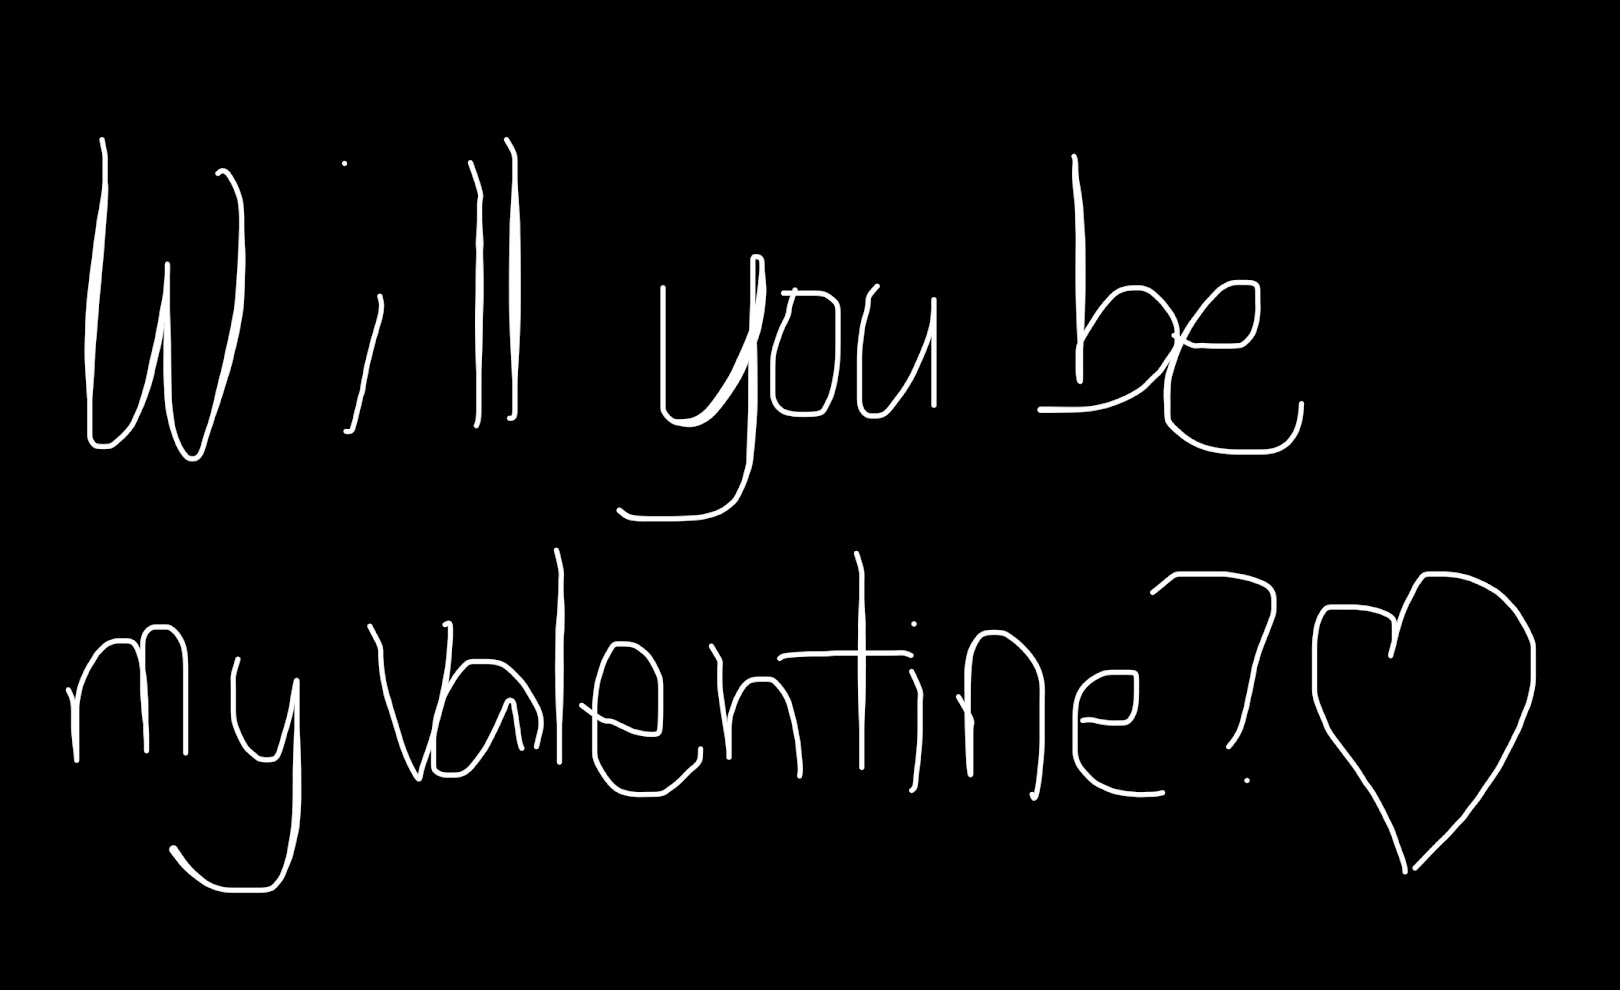 Will you be
my valentine?♡